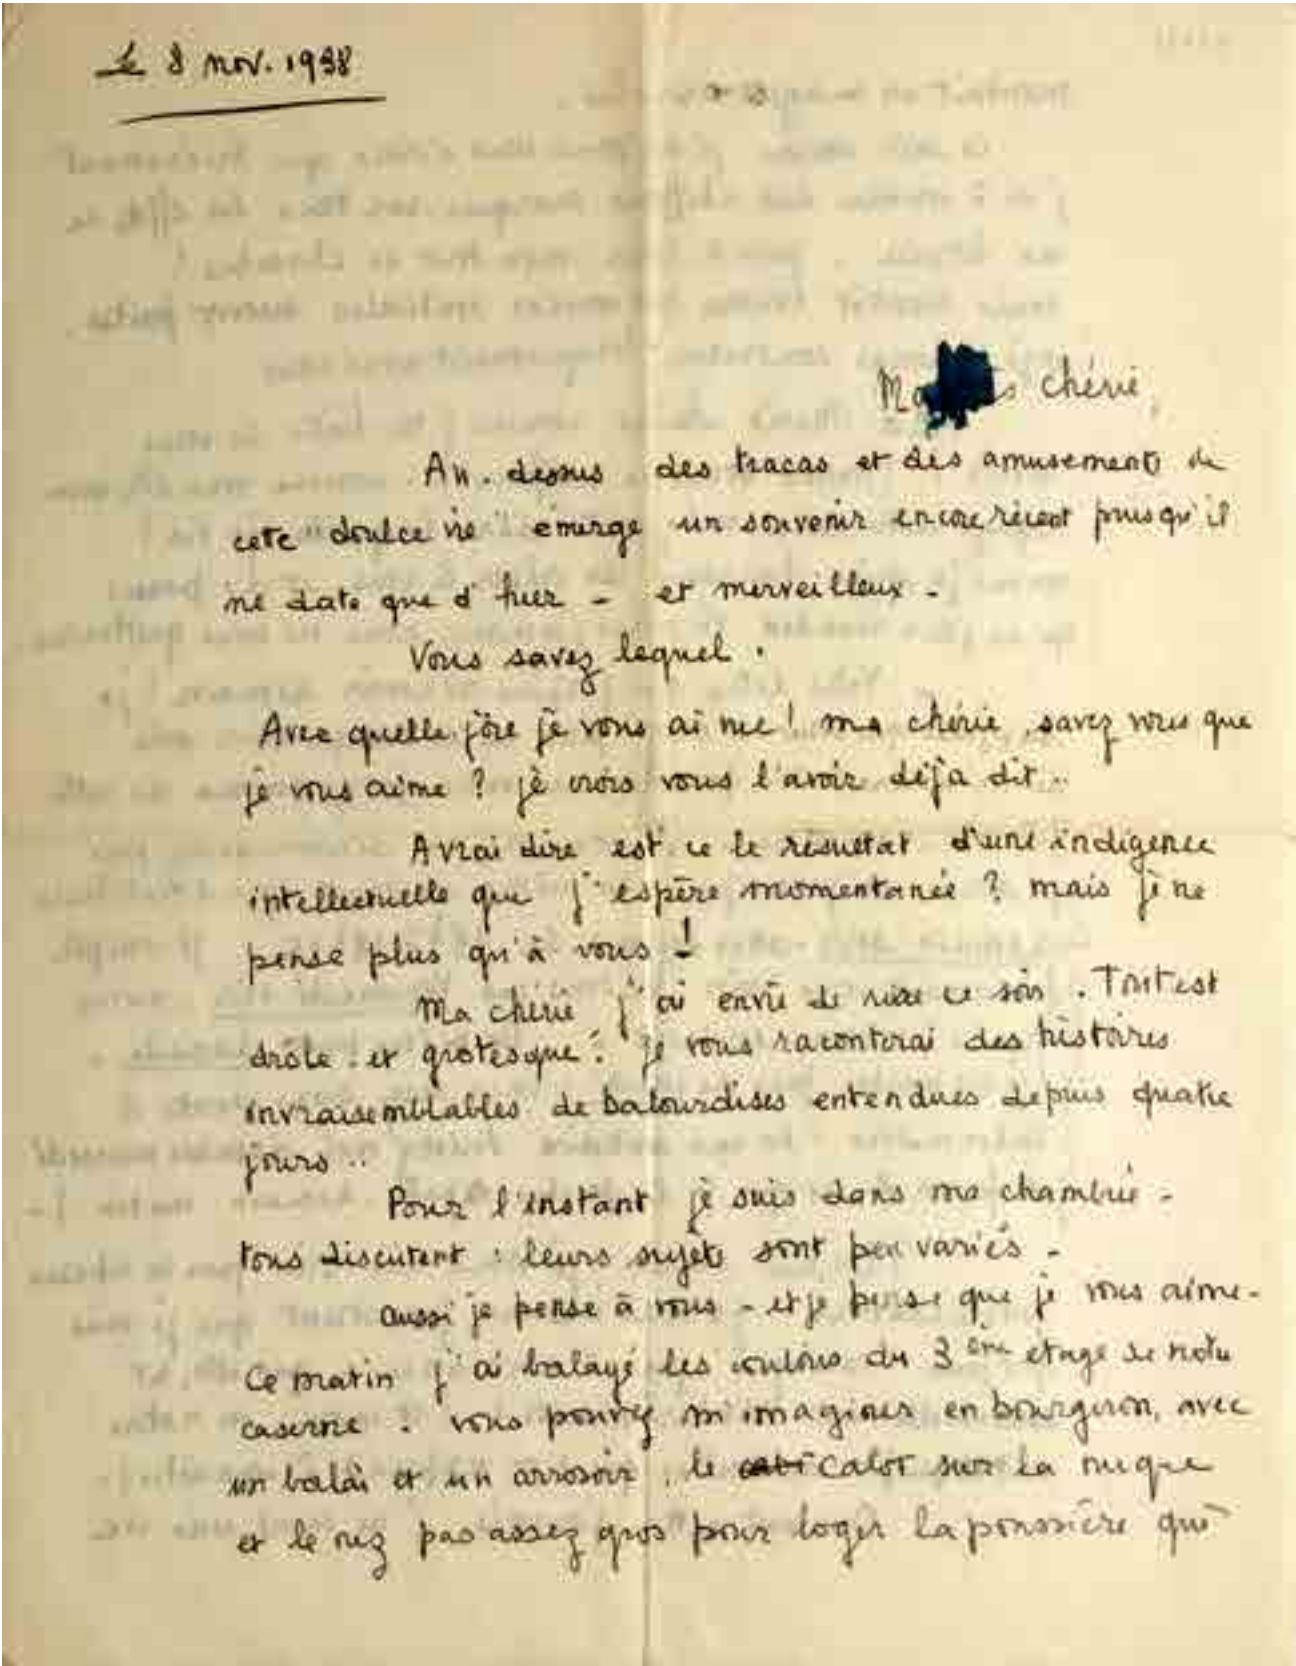 Le 8 nov. 1938
Ma chérie,
Au-dessus des tracas et des amusements de
cete doulce vie émerge un souvenir encore récent puisqu'il
ne date que d'hier - et merveilleux -
Vous savez lequel.
Avec quelle joie je vous ai vue! ma chérie, savez vous que
je vous aime? je crois vous l'avoir déja dit..
A vrai dire est ce le résultat d'une indigence
intellectuelle que j'espère momentanée? mais je ne
pense plus qu'à vous!
Ma chérie j'ai envie de rire ce soir. Tout est
drôle et grotesque. Je vous raconterai des histoires
invraisemblables de balourdises entendues depuis quatre
jours..
Pour l'instant je suis dans ma chambrée -
tous discutent: leurs sujets sont peu variés -
aussi je pense à vous - et je pense que je vous aime -
Ce matin j'ai balayé les couloirs du 3ème étage de notre
caserne: vous pouvez m'imaginer en bourgeron, avec
un balai et un arrosoir, le calot sur la nuque
et le nez pas assez gros pour loger la poussière qui